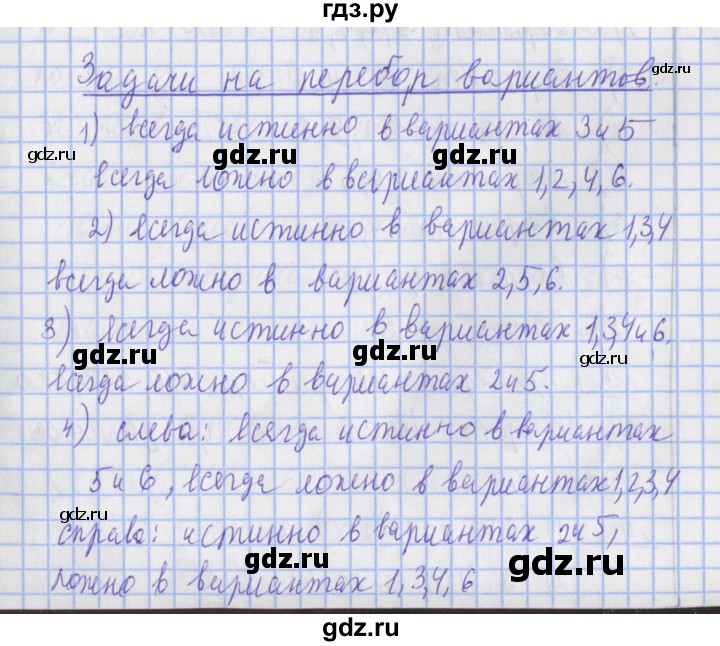 гдз.ру
Задачи на перебор вариантов.
1) всегда истинно в вариантах 3 и 5
всегда ложно в вариантах 1, 2, 4, 6.
2) всегда истинно в вариантах 1,3,4
всегда ложно в вариантах 2, 5, 6.
3) всегда истинно в вариантах 1,3,4 и 6,
всегда ложно в вариантах 2 и 5.
4) слева: всегда истинно в вариантах
5 и 6, всегда ложно в вариантах 1,2,3,4
справа: истинно в вариантах 2 и 5,
ложно в вариантах 1, 3, 4, 6
gdz.ru
gdz.ru
gdz.ru
gdz.ru
gdz.ru
gdz.ru
gdz.ru
gdz.ru
gdz.ru
gdz.ru
gdz.ru
gdz.ru
gdz.ru
gdz.ru